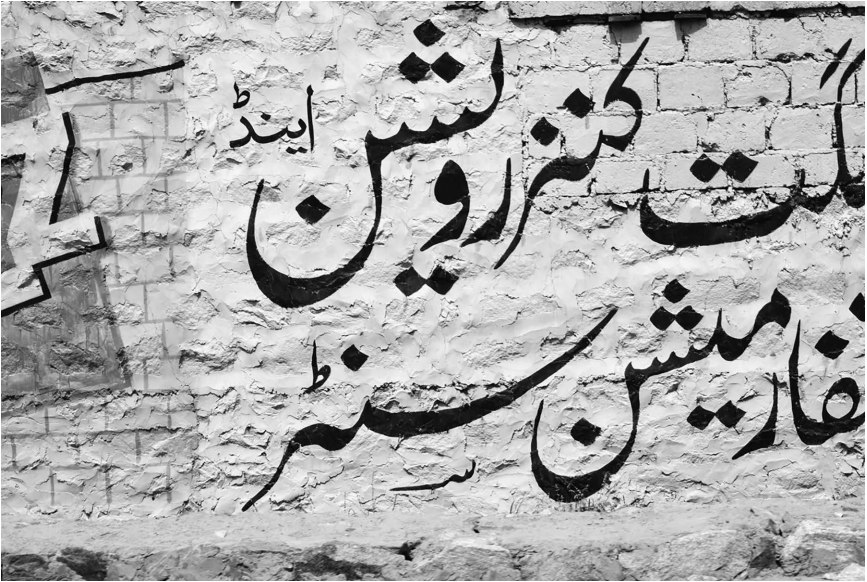 گلت کنزرویشن اینڈ
نفارمیشن سنٹر